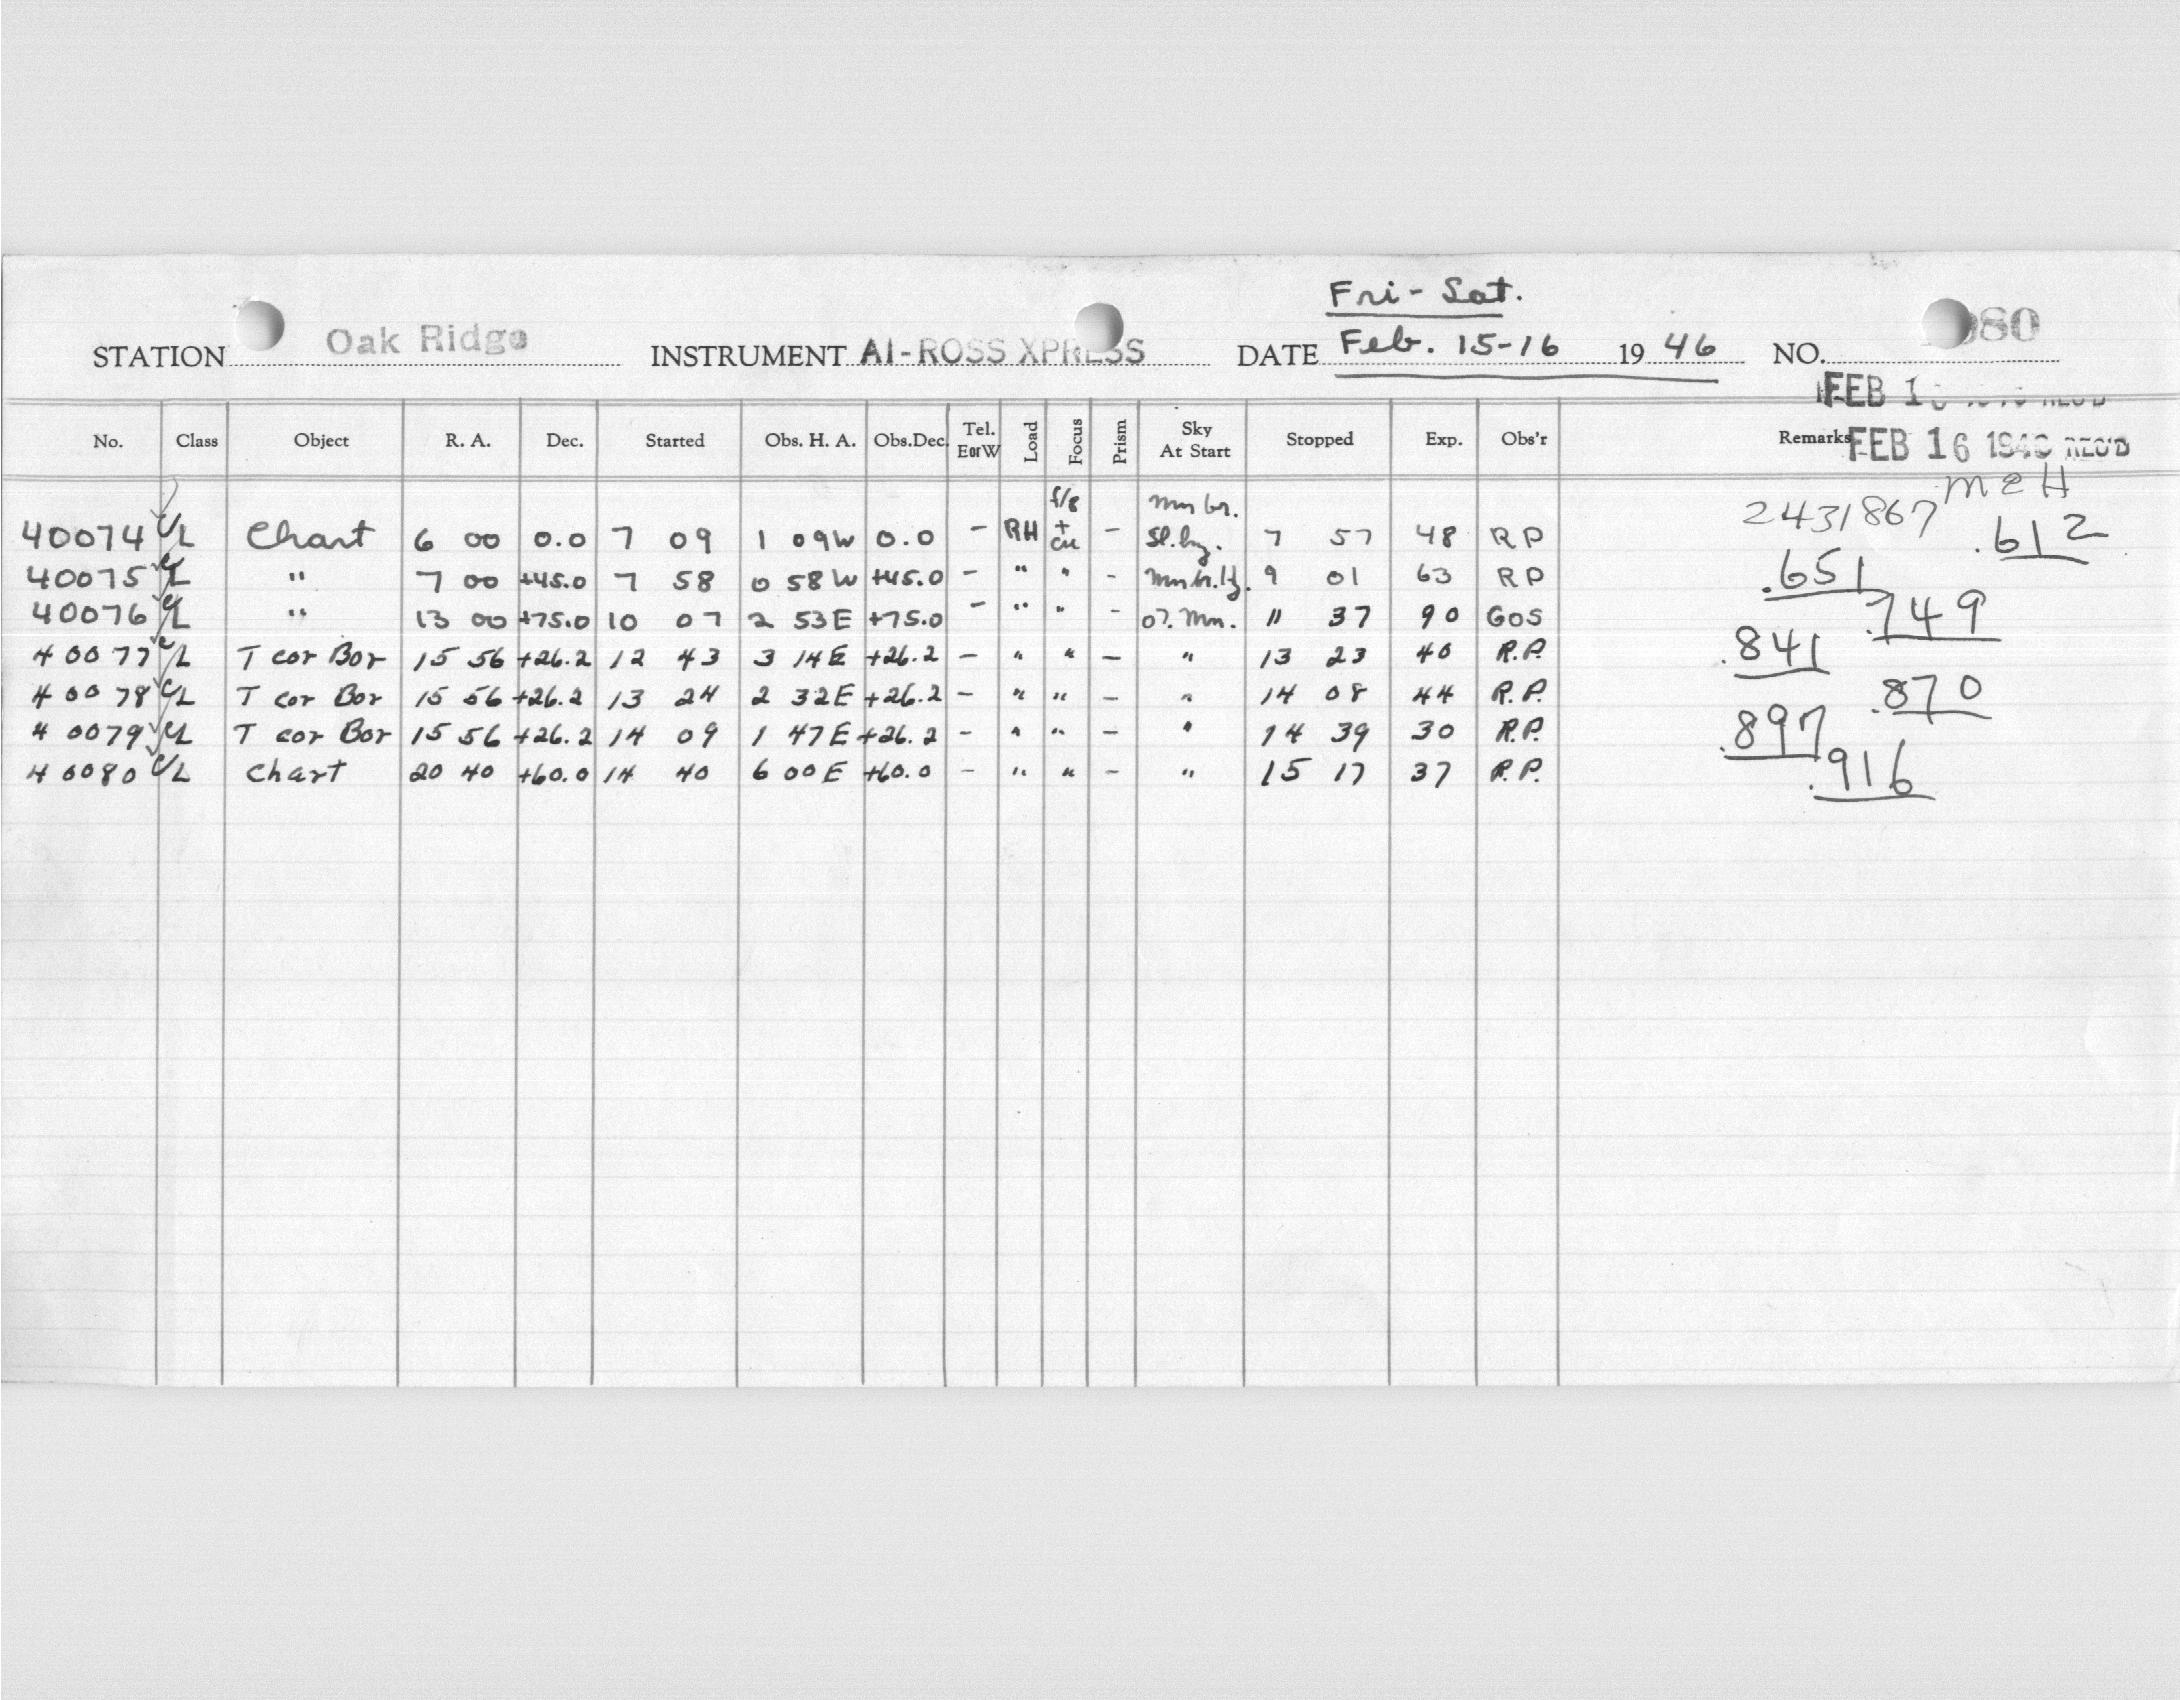 Fri - Sat.
STATION Oak Ridge INSTRUMENT AI-ROSS XPRESS DATE Feb. 15-16 19 46 NO. 80
FEB 1
No. Class Object R. A. Dec. Started Obs. H. A. Obs.Dec. Tel. EorW Load Focus Prism Sky At Start Stopped Exp. Obs'r Remarks FEB 16 1946 REC'D
f/8 mn br. 2431867 M2H
40074 C/L Chart 6 00 0.0 7 09 1 09W 0.0 - RH + cu - sl. hzy. 7 57 48 RP .612
40075 C/L " 7 00 +45.0 7 58 0 58W +45.0 - " " - 9 01 63 RP .651
40076 C/L " 13 00 +75.0 10 07 2 53E +75.0 - " " - Mn. 11 37 90 GOS .749
40077 C/L T cor Bor 15 56 +26.2 12 43 3 14E +26.2 - " " - " 13 23 40 R.P. .841
40078 C/L T cor Bor 15 56 +26.2 13 24 2 32E +26.2 - " " - " 14 08 44 R.P. .870
40079 C/L T cor Bor 15 56 +26.2 14 09 1 47E +26.2 - " " - " 14 39 30 R.P. .897
40080 C/L Chart 20 40 +60.0 14 40 6 00E +60.0 - " " - " 15 17 37 R.P. .916